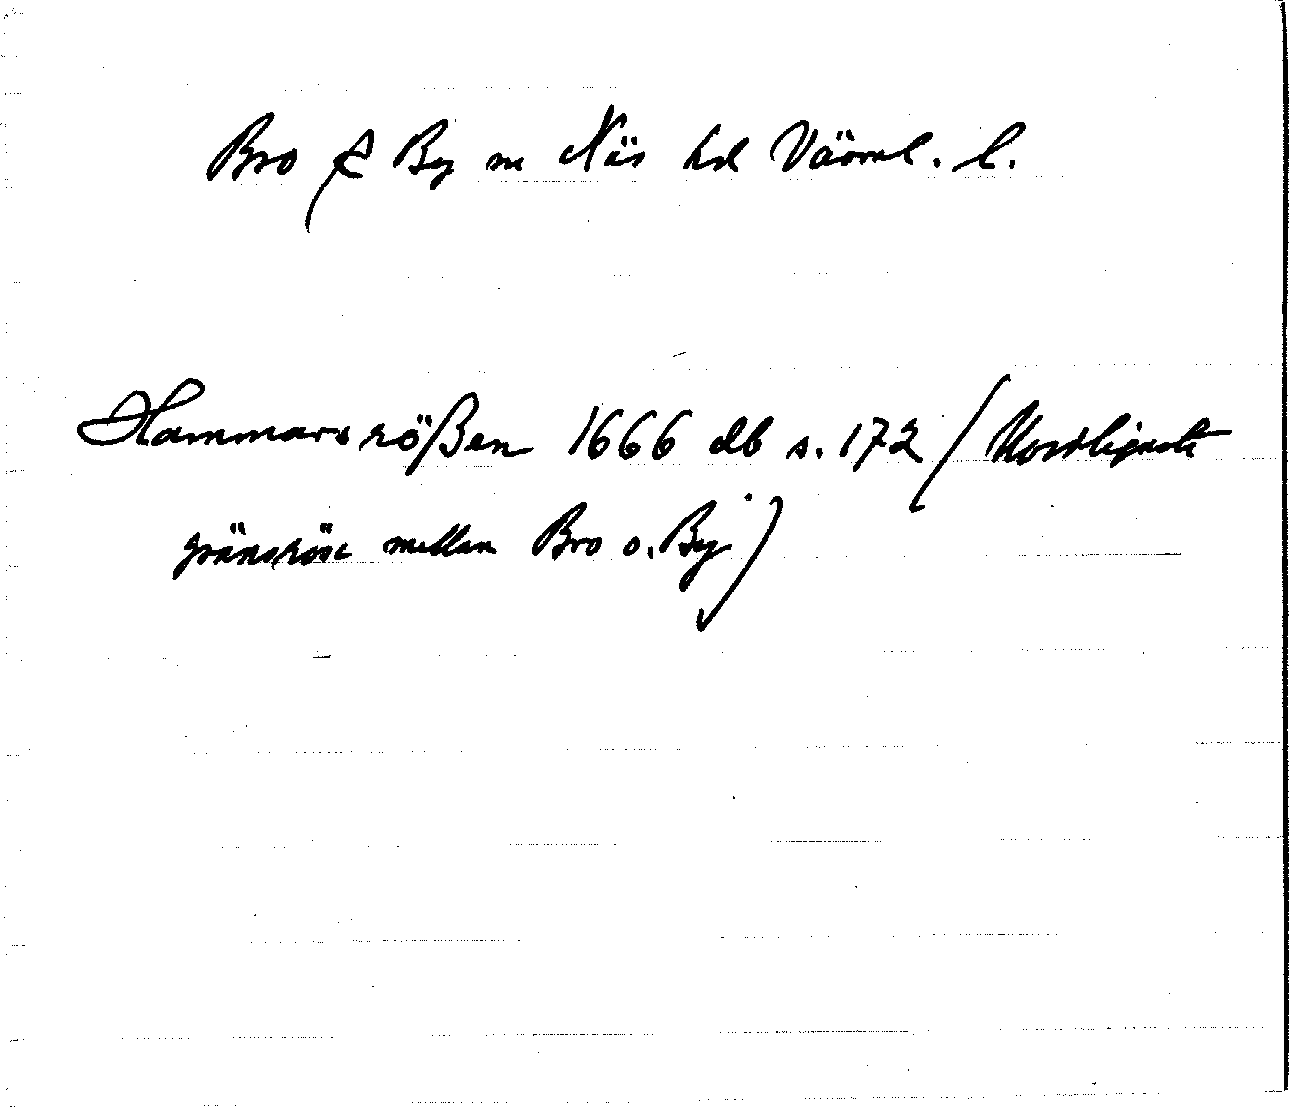 Bro sn By sn Näs hd Värml. l.
Hammarsrößen 1666 db s. 172 (Nordligaste
gränsröse mellan Bro o. By)